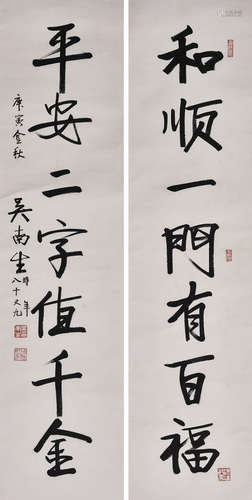 和顺一門有百福
平安二字值千金
庚寅金秋
吴南生時年
八十又九